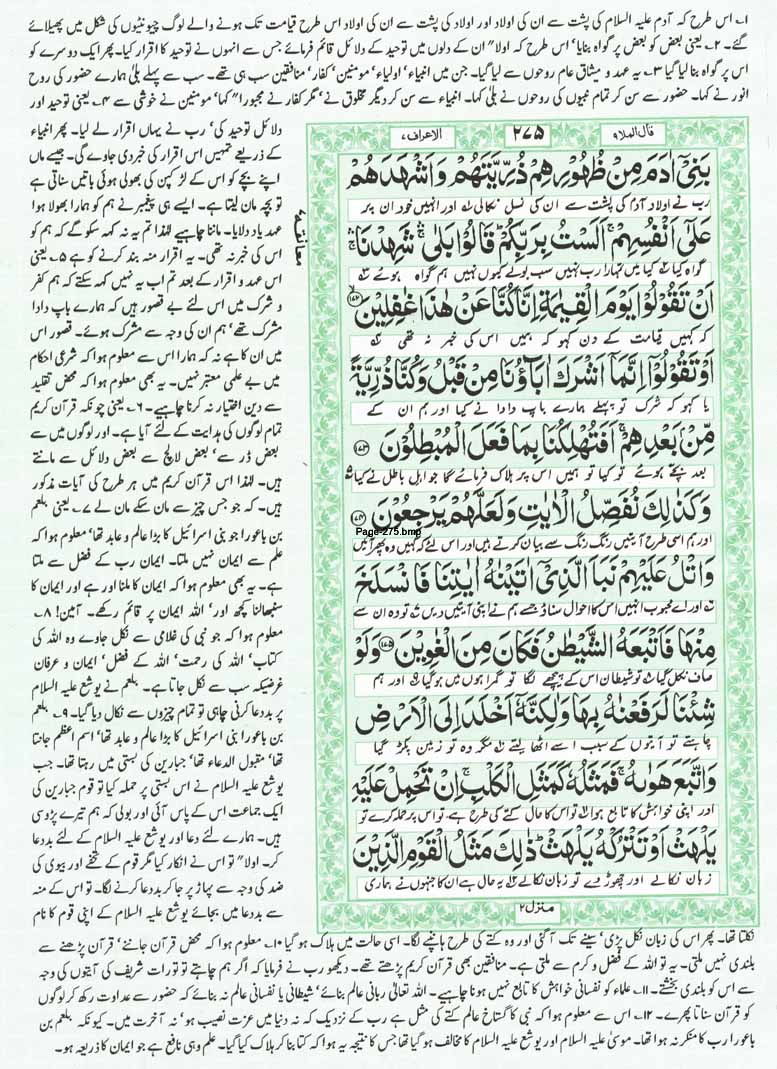 ۱۔ اس طرح کہ آدم علیہ السلام کی پشت سے ان کی اولاد اور اولاد کی پشت سے ان کی اولاد اس طرح قیامت تک ہونے والے لوگ چیونٹیوں کی شکل میں پھیلائے
گئے۔ ۲۔ یعنی بعض کو بعض پر گواہ بنایا‘ اس طرح کہ اولا" ان کے دلوں میں توحید کے دلائل قائم فرمائے جس سے انہوں نے توحید کا اقرار کیا۔ پھر ایک دوسرے کو
اس پر گواہ بنا لیا گیا ۳۔ یہ عہد و میثاق عام روحوں سے لیا گیا۔ جن میں انبیاء‘ اولیاء‘ مومنین‘ کفار‘ منافقین سب ہی تھے۔ سب سے پہلے بلیٰ ہمارے حضور کی روح
انور نے کہا۔ حضور سے سن کر تمام نبیوں کی روحوں نے بلیٰ کہا۔ انبیاء سے سن کر دیگر مخلوق نے‘ مگر کفار نے مجبورا" کہا‘ مومنین نے خوشی سے ۴۔ یعنی توحید اور
دلائل توحید کی‘ رب نے یہاں اقرار لے لیا۔ پھر انبیاء
کے ذریعے تمہیں اس اقرار کی خبر دی جاوے گی۔ جیسے ماں
اپنے بچے کو اس کے لڑکپن کی بھولی ہوئی باتیں سناتی ہے
تو بچہ مان لیتا ہے۔ ایسے ہی پیغمبر نے ہم کو ہمارا بھولا ہوا
عہد یاد دلایا۔ ماننا چاہیے لہٰذا تم یہ نہ کہہ سکو گے کہ ہم کو
اس کی خبر نہ تھی۔ یہ اقرار منہ بند کرنے کو ہے ۵۔ یعنی
اس عہد و اقرار کے بعد تم اب یہ نہیں کہہ سکتے کہ ہم کفر
و شرک میں اس لئے بے قصور ہیں کہ ہمارے باپ دادا
مشرک تھے‘ ہم ان کی وجہ سے مشرک ہوئے۔ قصور اس
میں ان کا ہے نہ کہ ہمارا اس سے معلوم ہوا کہ شرعی احکام
میں بے علمی معتبر نہیں۔ یہ بھی معلوم ہوا کہ محض تقلید
سے دین اختیار نہ کرنا چاہیے۔ ۶۔ یعنی چونکہ قرآن کریم
تمام لوگوں کی ہدایت کے لئے آیا ہے۔ اور لوگوں میں سے
بعض ڈر سے‘ بعض لالچ سے بعض دلائل سے مانتے
ہیں۔ لہٰذا اس قرآن کریم میں ہر طرح کی آیات مذکور
ہیں۔ کہ جو جس چیز سے مان سکے مان لے ۷۔ یعنی بلعم
بن باعورا جو بنی اسرائیل کا بڑا عالم و عابد تھا‘ معلوم ہوا کہ
علم سے ایمان نہیں ملتا۔ ایمان رب کے فضل سے ملتا
ہے۔ یہ بھی معلوم ہوا کہ ایمان کا ملنا اور ہے اور ایمان کا
سنبھالنا کچھ اور‘ اللہ ایمان پر قائم رکھے۔ آمین! ۸۔
معلوم ہوا کہ جو نبی کی غلامی سے نکل جاوے وہ اللہ کی
کتاب‘ اللہ کی رحمت‘ اللہ کے فضل‘ ایمان و عرفان
غرضیکہ سب سے نکل جاتا ہے۔ بلعم نے یوشع علیہ السلام
پر بددعا کرنی چاہی تو تمام چیزوں سے نکال دیا گیا۔ ۹۔ بلعم
بن باعورا بنی اسرائیل کا بڑا عالم و عابد تھا‘ اسم اعظم جانتا
تھا‘ مقبول الدعاء تھا‘ جبارین کی بستی میں رہتا تھا۔ جب
یوشع علیہ السلام نے اس بستی پر حملہ کیا تو قوم جبارین کی
ایک جماعت اس کے پاس آئی اور بولی کہ ہم تیرے پڑوسی
ہیں۔ ہمارے لئے دعا اور یوشع علیہ السلام کے لئے بددعا
کر۔ اولا" تو اس نے انکار کیا مگر قوم کے تحفے اور بیوی کی
ضد کی وجہ سے پہاڑ پر جا کر بددعا کرنے لگا۔ تو اس کے منہ
سے بددعا میں بجائے یوشع علیہ السلام کے اپنی قوم کا نام
قال الملا ۹
۲۷۵
الاعراف ۷
معانقة
بَنِیْۤ اٰدَمَ مِنْ ظُهُوْرِهِمْ ذُرِّیَّتَهُمْ وَاَشْهَدَهُمْ
رب نے اولاد آدم کی پشت سے ان کی نسل نکالی اور انہیں خود ان پر
عَلٰۤی اَنْفُسِهِمْ ۚ اَلَسْتُ بِرَبِّكُمْ ؕ قَالُوْا بَلٰی ۛۚ شَهِدْنَا ۛۚ
گواہ کیا کیا میں تمہارا رب نہیں سب بولے کیوں نہیں ہم گواہ ہوئے
اَنْ تَقُوْلُوْا یَوْمَ الْقِیٰمَةِ اِنَّا كُنَّا عَنْ هٰذَا غٰفِلِیْنَ ﴿۱۷۲﴾
کہ کہیں قیامت کے دن کہو کہ ہمیں اس کی خبر نہ تھی
اَوْ تَقُوْلُوْۤا اِنَّمَاۤ اَشْرَكَ اٰبَآؤُنَا مِنْ قَبْلُ وَكُنَّا ذُرِّیَّةً
یا کہو کہ شرک تو پہلے ہمارے باپ دادا نے کیا اور ہم ان کے
مِّنْۢ بَعْدِهِمْ ۚ اَفَتُهْلِكُنَا بِمَا فَعَلَ الْمُبْطِلُوْنَ ﴿۱۷۳﴾
بعد بچے ہوئے تو کیا تو ہمیں اس پر ہلاک فرمائے گا جو اہل باطل نے کیا
وَكَذٰلِكَ نُفَصِّلُ الْاٰیٰتِ وَلَعَلَّهُمْ یَرْجِعُوْنَ ﴿۱۷۴﴾
Page-275.bmp
اور ہم اسی طرح آیتیں رنگ رنگ سے بیان کرتے ہیں اور اس لئے کہ کہیں وہ پھر آئیں
وَاتْلُ عَلَیْهِمْ نَبَاَ الَّذِیْۤ اٰتَیْنٰهُ اٰیٰتِنَا فَانْسَلَخَ
اور اے محبوب انہیں اس کا احوال سناؤ جسے ہم نے اپنی آیتیں دیں تو وہ ان سے
مِنْهَا فَاَتْبَعَهُ الشَّیْطٰنُ فَكَانَ مِنَ الْغٰوِیْنَ ﴿۱۷۵﴾ وَلَوْ
صاف نکل گیا تو شیطان اس کے پیچھے لگا تو گمراہوں میں ہو گیا اور ہم
شِئْنَا لَرَفَعْنٰهُ بِهَا وَلٰكِنَّهٗۤ اَخْلَدَ اِلَی الْاَرْضِ
چاہتے تو آیتوں کے سبب اسے اٹھا لیتے مگر وہ تو زمین پکڑ گیا
وَاتَّبَعَ هَوٰىهُ ۚ فَمَثَلُهٗ كَمَثَلِ الْكَلْبِ ۚ اِنْ تَحْمِلْ عَلَیْهِ
اور اپنی خواہش کا تابع ہوا تو اس کا حال کتے کی طرح ہے تو اس پر حملہ کرے تو
یَلْهَثْ اَوْ تَتْرُكْهُ یَلْهَثْ ؕ ذٰلِكَ مَثَلُ الْقَوْمِ الَّذِیْنَ
زبان نکالے اور چھوڑ دے تو زبان نکالے یہ حال ہے ان کا جنہوں نے ہماری
منزل ۲
نکلتا تھا۔ پھر اس کی زبان نکل پڑی‘ سینے تک آ گئی اور وہ کتے کی طرح ہانپنے لگا۔ اسی حالت میں ہلاک ہو گیا ۱۰۔ معلوم ہوا کہ محض قرآن جاننے‘ قرآن پڑھنے سے
بلندی نہیں ملتی۔ یہ تو اللہ کے فضل و کرم سے ملتی ہے۔ منافقین بھی قرآن کریم پڑھتے تھے۔ دیکھو رب نے فرمایا کہ اگر ہم چاہتے تو تورات شریف کی آیتوں کی وجہ
سے اس کو بلندی بخشتے۔ ۱۱۔ علماء کو نفسانی خواہش کا تابع نہیں ہونا چاہیے۔ اللہ تعالیٰ ربانی عالم بنائے‘ شیطانی یا نفسانی عالم نہ بنائے کہ حضور سے عداوت رکھ کر لوگوں
کو قرآن سناتا پھرے۔ ۱۲۔ اس سے معلوم ہوا کہ نبی کا گستاخ عالم کتے کی مثل ہے رب کے نزدیک کہ نہ دنیا میں عزت نصیب ہو‘ نہ آخرت میں۔ کیونکہ بلعم بن
باعورا رب کا منکر نہ ہوا تھا۔ موسیٰ علیہ السلام اور یوشع علیہ السلام کا مخالف ہو گیا تھا جس کا نتیجہ یہ ہوا کہ کتا بنا کر ہلاک کیا گیا۔ علم وہی نافع ہے جو ایمان کا ذریعہ ہو۔